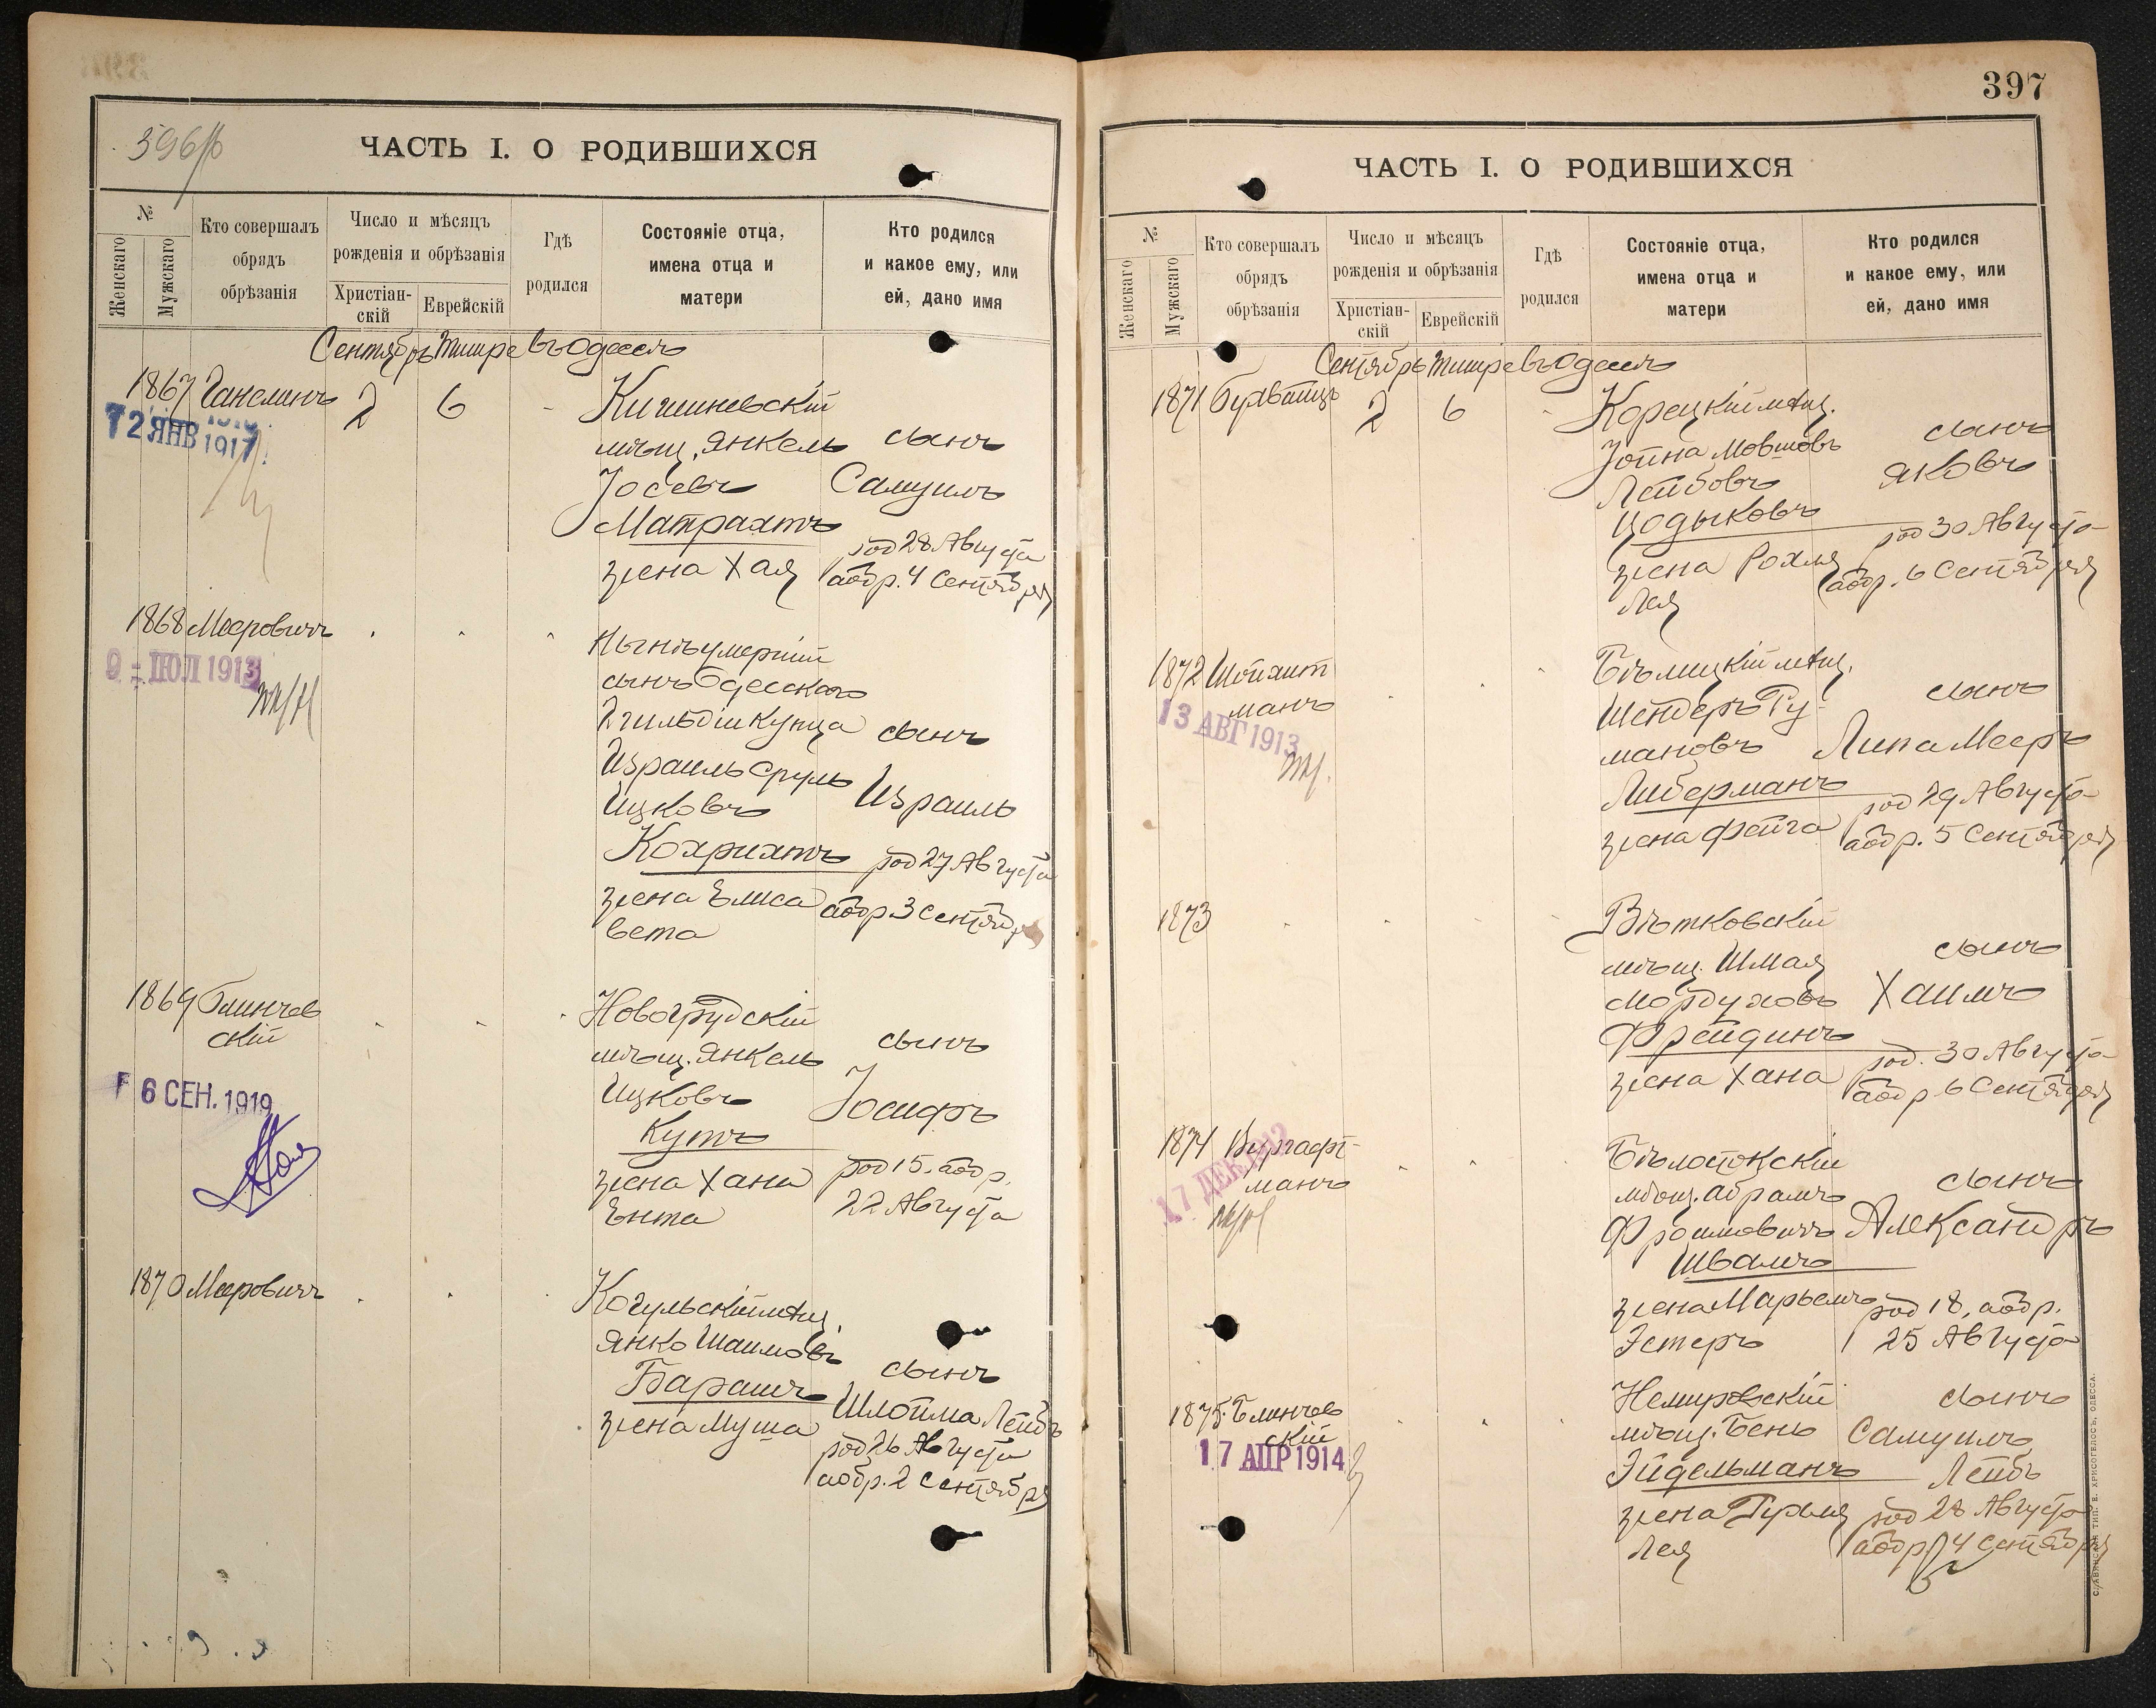 396/б
ЧАСТЬ I. О РОДИВШИХСЯ
№
Женскаго
Мужскаго
Кто совершалъ
обрядъ
обрѣзанія
Число и мѣсяцъ
рожденія и обрѣзанія
Христіан-
скій
Еврейскій
Гдѣ
родился
Состояніе отца,
имена отца и
матери
Кто родился
и какое ему, или
ей, дано имя
Сентябрь Тишре въ Одессѣ
1867 Ганелинъ 2 6
ЯНВ 1917
Кишиневскій
мѣщ. Янкель
Іосевъ
Матрахтъ
жена Хая
сынъ
Самуилъ
род 28 Августа
а обр. 4 Сентября
1868 Мееровичъ
9 - ІЮЛ 1913
Нынѣ умершій
сынъ Одесскаго
2 гильдіи купца
Израиль Сруль
Ицковъ
Кохрихтъ
жена Елиса
вета
сынъ
Израиль
род 27 Августа
а обр 3 Сентября
1869 Блинчев
скій
6 СЕН. 1919
Новогрудскій
мѣщ. Янкель
Ицковъ
Кутъ
жена Хана
Ента
сынъ
Іосифъ
род 15. а обр.
22 Августа
1870 Мееровичъ
Кагульскій мѣщ.
Янко Шаимовъ
Барашъ
жена Муша
сынъ
Шлойма Лейбъ
род 26 Августа
а обр. 2 Сентября
397
ЧАСТЬ I. О РОДИВШИХСЯ
№
Женскаго
Мужскаго
Кто совершалъ
обрядъ
обрѣзанія
Число и мѣсяцъ
рожденія и обрѣзанія
Христіан-
скій
Еврейскій
Гдѣ
родился
Состояніе отца,
имена отца и
матери
Кто родился
и какое ему, или
ей, дано имя
Сентябрь Тишре въ Одессѣ
1871 2 6
Корецкій мѣщ.
Іойна Мовшовъ
Лейбовъ
Цодыковъ
жена Рохля
Лея
сынъ
Яковъ
род 30 Августа
а обр. 6 Сентября
1872 Шойхит
манъ
13 АВГ 1913
Бѣлицкій мѣщ.
Шендеръ Ру-
мановъ
Либерманъ
жена Фейга
сынъ
Липа Мееръ
род 29 Августа
а обр. 5 Сентября
1873
Вѣтковскій
мѣщ. Шмая
Мордуховъ
Фрейдинъ
жена Хана
сынъ
Хаимъ
род. 30 Августа
а обр 6 Сентября
1874 Вургафт-
манъ
17 ДЕК 1912
Бѣлостокскій
мѣщ. Абрамъ
Фроимовичъ
Швамъ
жена Марьемъ
Эстеръ
сынъ
Александръ
род 18, а обр.
25 Августа
1875. Блинчев
скій
17 АПР 1914
Немировскій
мѣщ. Бень
Эйдельманъ
жена Рухля
Лея
сынъ
Самуилъ
Лейбъ
род 28 Августа
а обр 4 Сентября
СЛАВЯНСКАЯ ТИП. Е. ХРИСОГЕЛОСЪ, ОДЕССА.